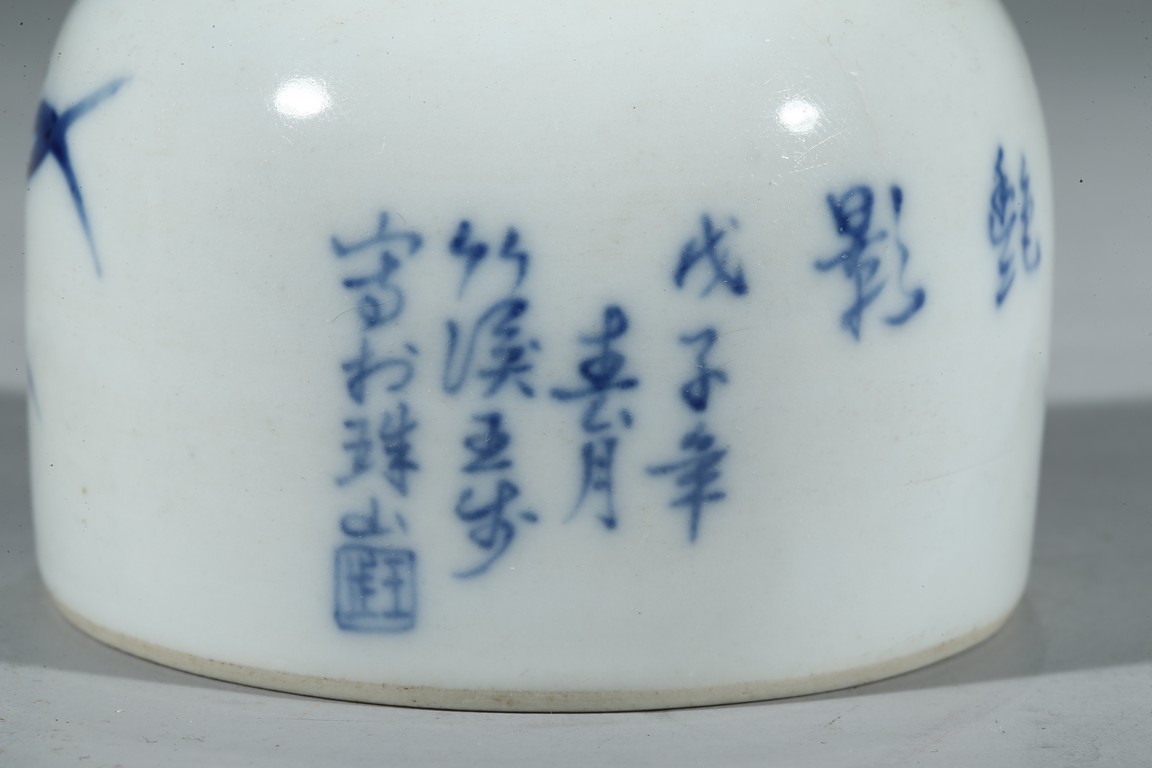 艷
影
戊子年
春月
竹溪王步
寫於珠山